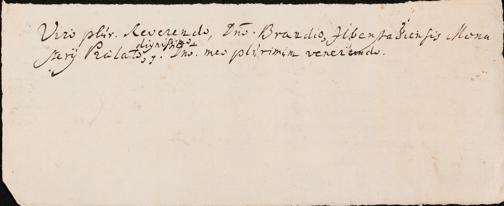 Viro plur. Reverendo, Dno. Brando, Ilbenstadiensis Mona
sterij Prælato, dignissimo, Dno. meo plurimum venerando.